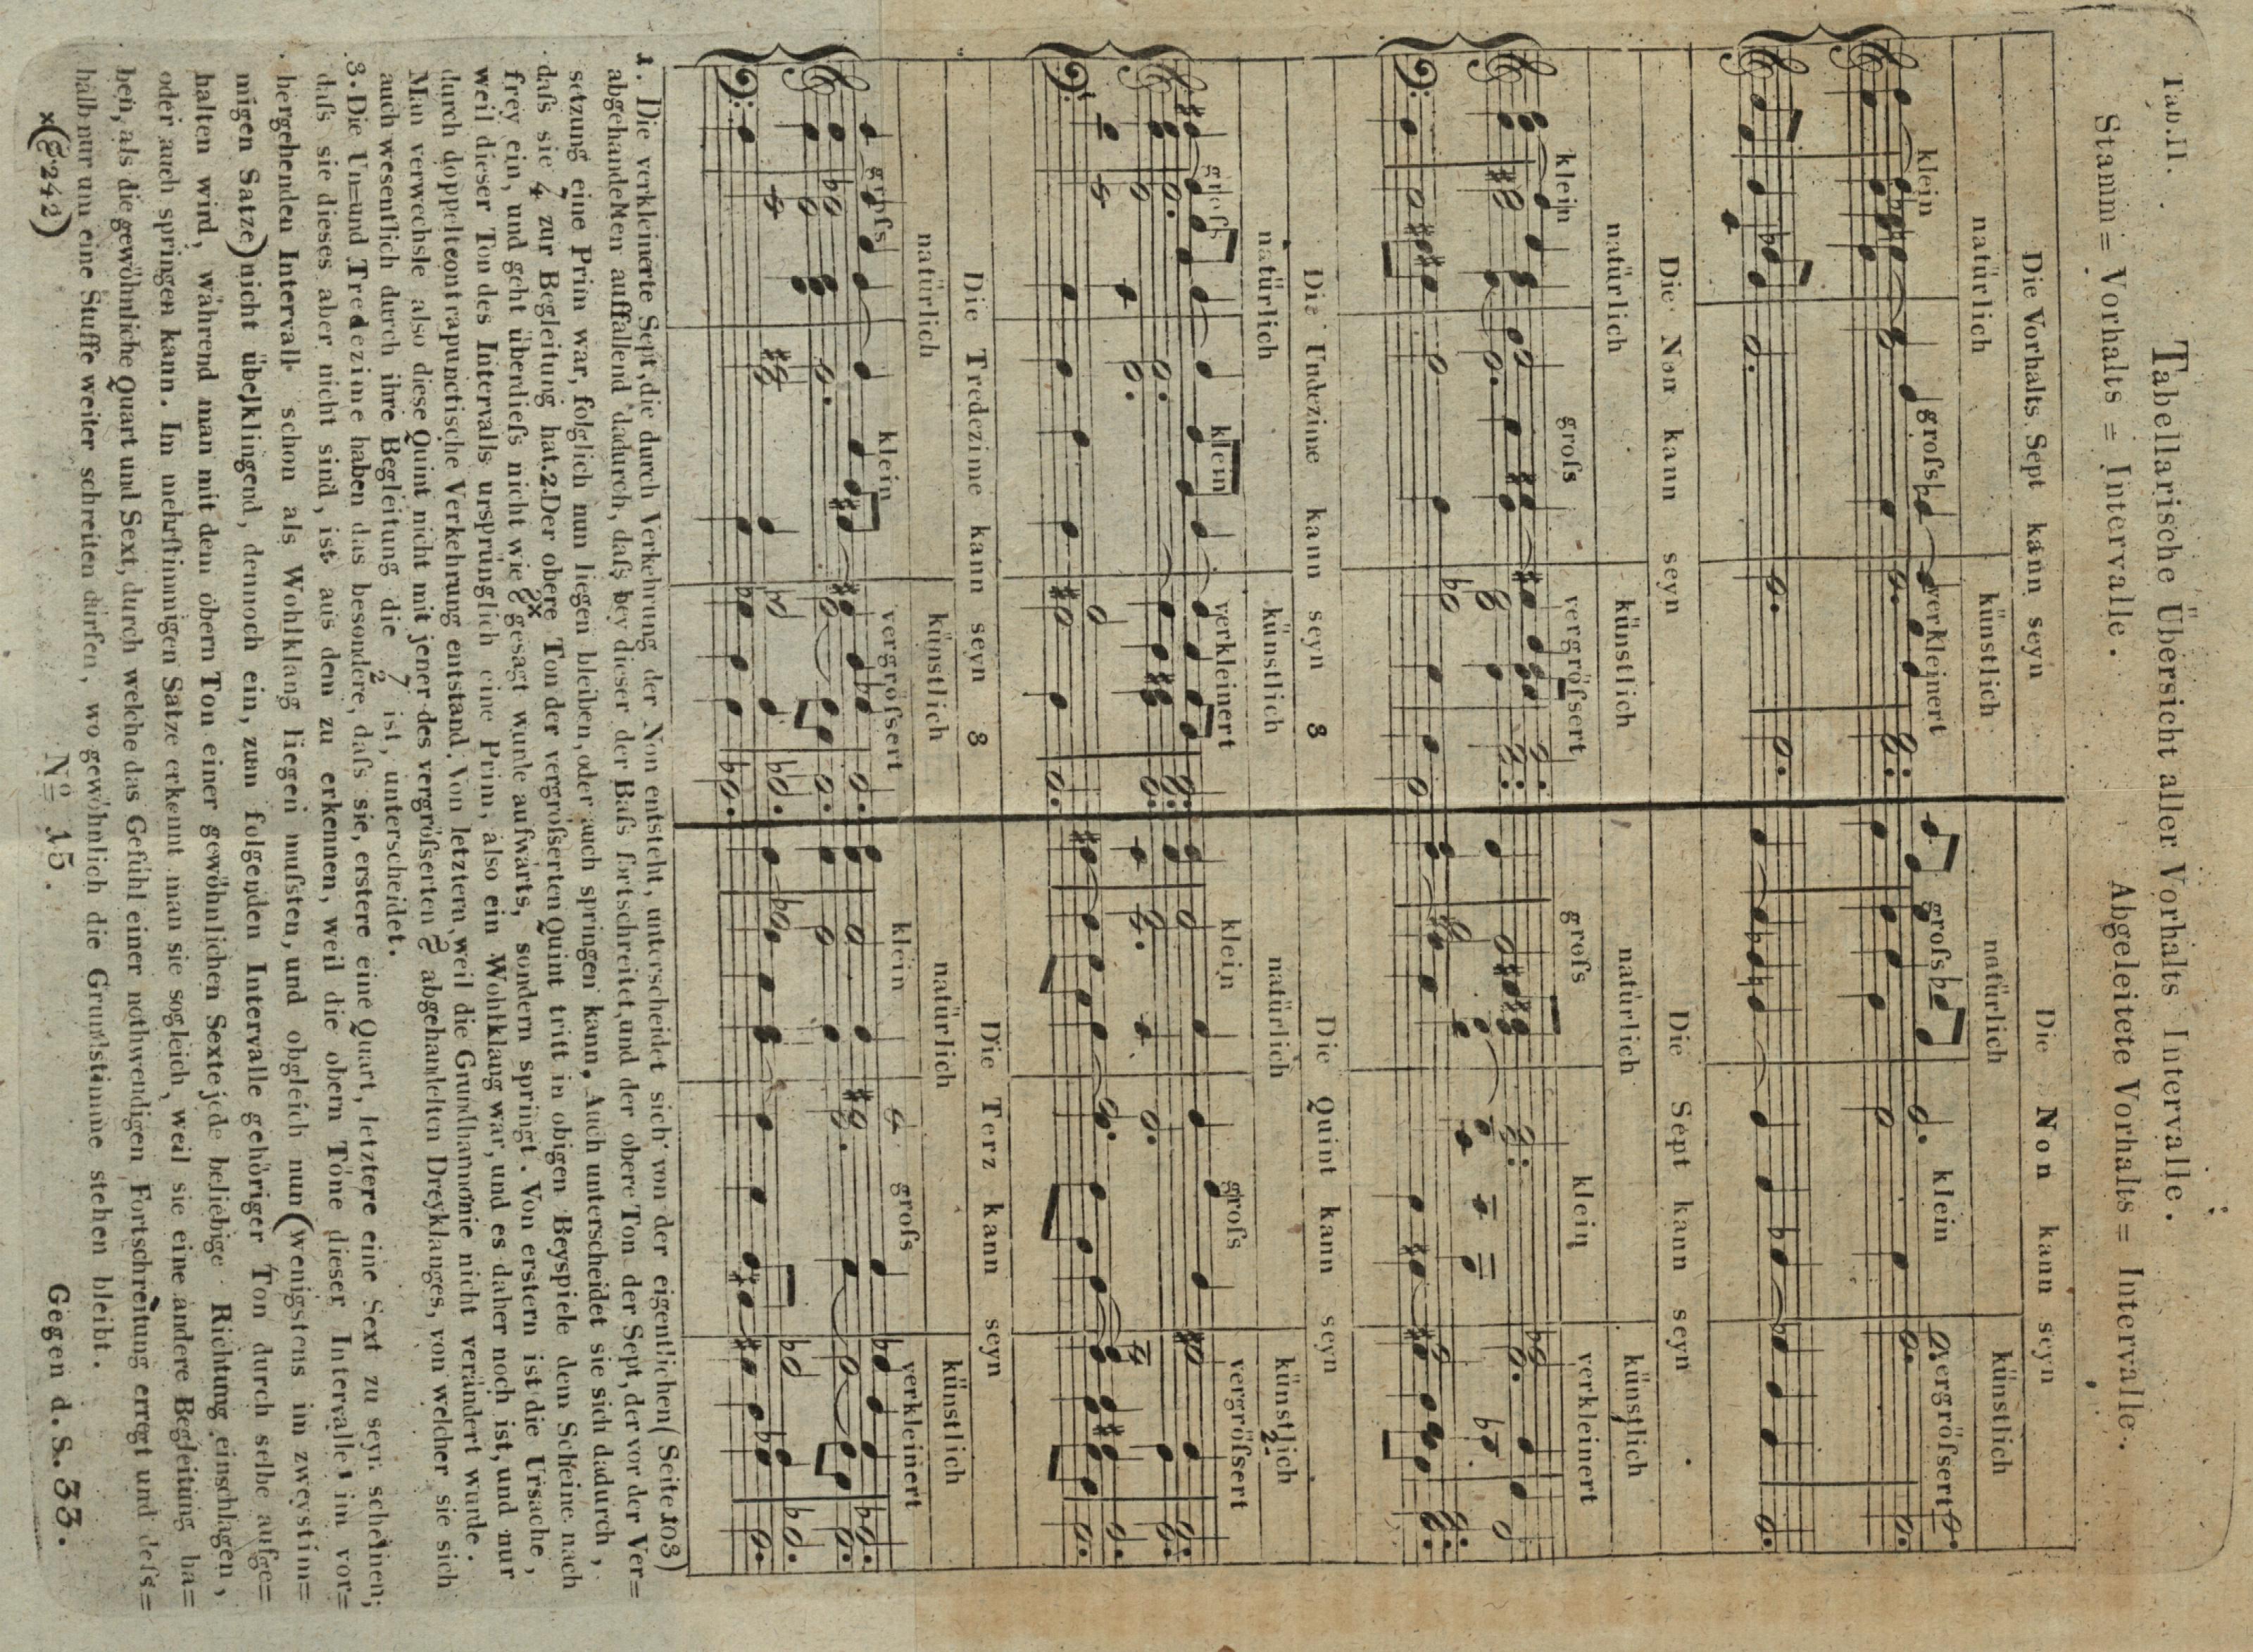 Tab. II.
Tabellarische Übersicht aller Vorhalts Intervalle.
Stamm = Vorhalts = Intervalle.
Abgeleitete Vorhalts = Intervalle.
Die Vorhalts. Sept kann seyn
Die Non kann seyn
natürlich künstlich
natürlich künstlich
klein groſs verkleinert
groſs klein vergröſsert
Die Non kann seyn
Die Sept kann seyn
natürlich künstlich
natürlich künstlich
klein groſs vergröſsert
groſs klein verkleinert
Die Undezime kann seyn 3
Die Quint kann seyn
natürlich künstlich
natürlich künstlich 2.
groſs klein verkleinert
klein groſs vergröſsert
Die Tredezime kann seyn 3
Die Terz kann seyn
natürlich künstlich
natürlich künstlich
groſs klein vergröſsert
klein groſs verkleinert
1. Die verkleinerte Sept, die durch Verkehrung der Non entsteht, unterscheidet sich von der eigentlichen (Seite 103)
abgehandelten auffallend dadurch, daſs bey dieser der Baſs fortschreitet, und der obere Ton der Sept, der vor der Ver=
setzung eine Prim war, folglich nun liegen bleiben, oder auch springen kann. Auch unterscheidet sie sich dadurch,
daſs sie 7 4 zur Begleitung hat. 2. Der obere Ton der vergröſserten Quint tritt in obigen Beyspiele dem Scheine nach
frey ein, und geht überdieſs nicht wie x gesagt wurde aufwärts, sondern springt. Von erstern ist die Ursache,
weil dieser Ton des Intervalls ursprünglich eine Prim, also ein Wohlklang war, und es daher noch ist, und nur
durch doppeltcontrapunctische Verkehrung entstand. Von letztern, weil die Grundharmonie nicht verändert wurde.
Man verwechsle also diese Quint nicht mit jener des vergröſserten abgehandelten Dreyklanges, von welcher sie sich
auch wesentlich durch ihre Begleitung die 7 2 ist, unterscheidet.
3. Die Un= und Tredezime haben das besondere, daſs sie, erstere eine Quart, letztere eine Sext zu seyn scheinen;
daſs sie dieses aber nicht sind, ist aus dem zu erkennen, weil die obern Töne dieser Intervalle im vor=
hergehenden Intervall schon als Wohlklang liegen muſsten, und obgleich nun (wenigstens im zweystim=
migen Satze) nicht übelklingend, dennoch ein, zum folgenden Intervalle gehöriger Ton durch selbe aufge=
halten wird, während man mit dem obern Ton einer gewöhnlichen Sexte jede beliebige Richtung einschlagen,
oder auch springen kann. Im mehrſtimmigen Satze erkennt man sie sogleich, weil sie eine andere Begleitung ha=
ben, als die gewöhnliche Quart und Sext, durch welche das Gefühl einer nothwendigen Fortschreitung erregt und deſs=
halb nur um eine Stuffe weiter schreiten dürfen, wo gewöhnlich die Grundstimme stehen bleibt.
x (§. 242)
No 15.
Gegen d. S. 33.